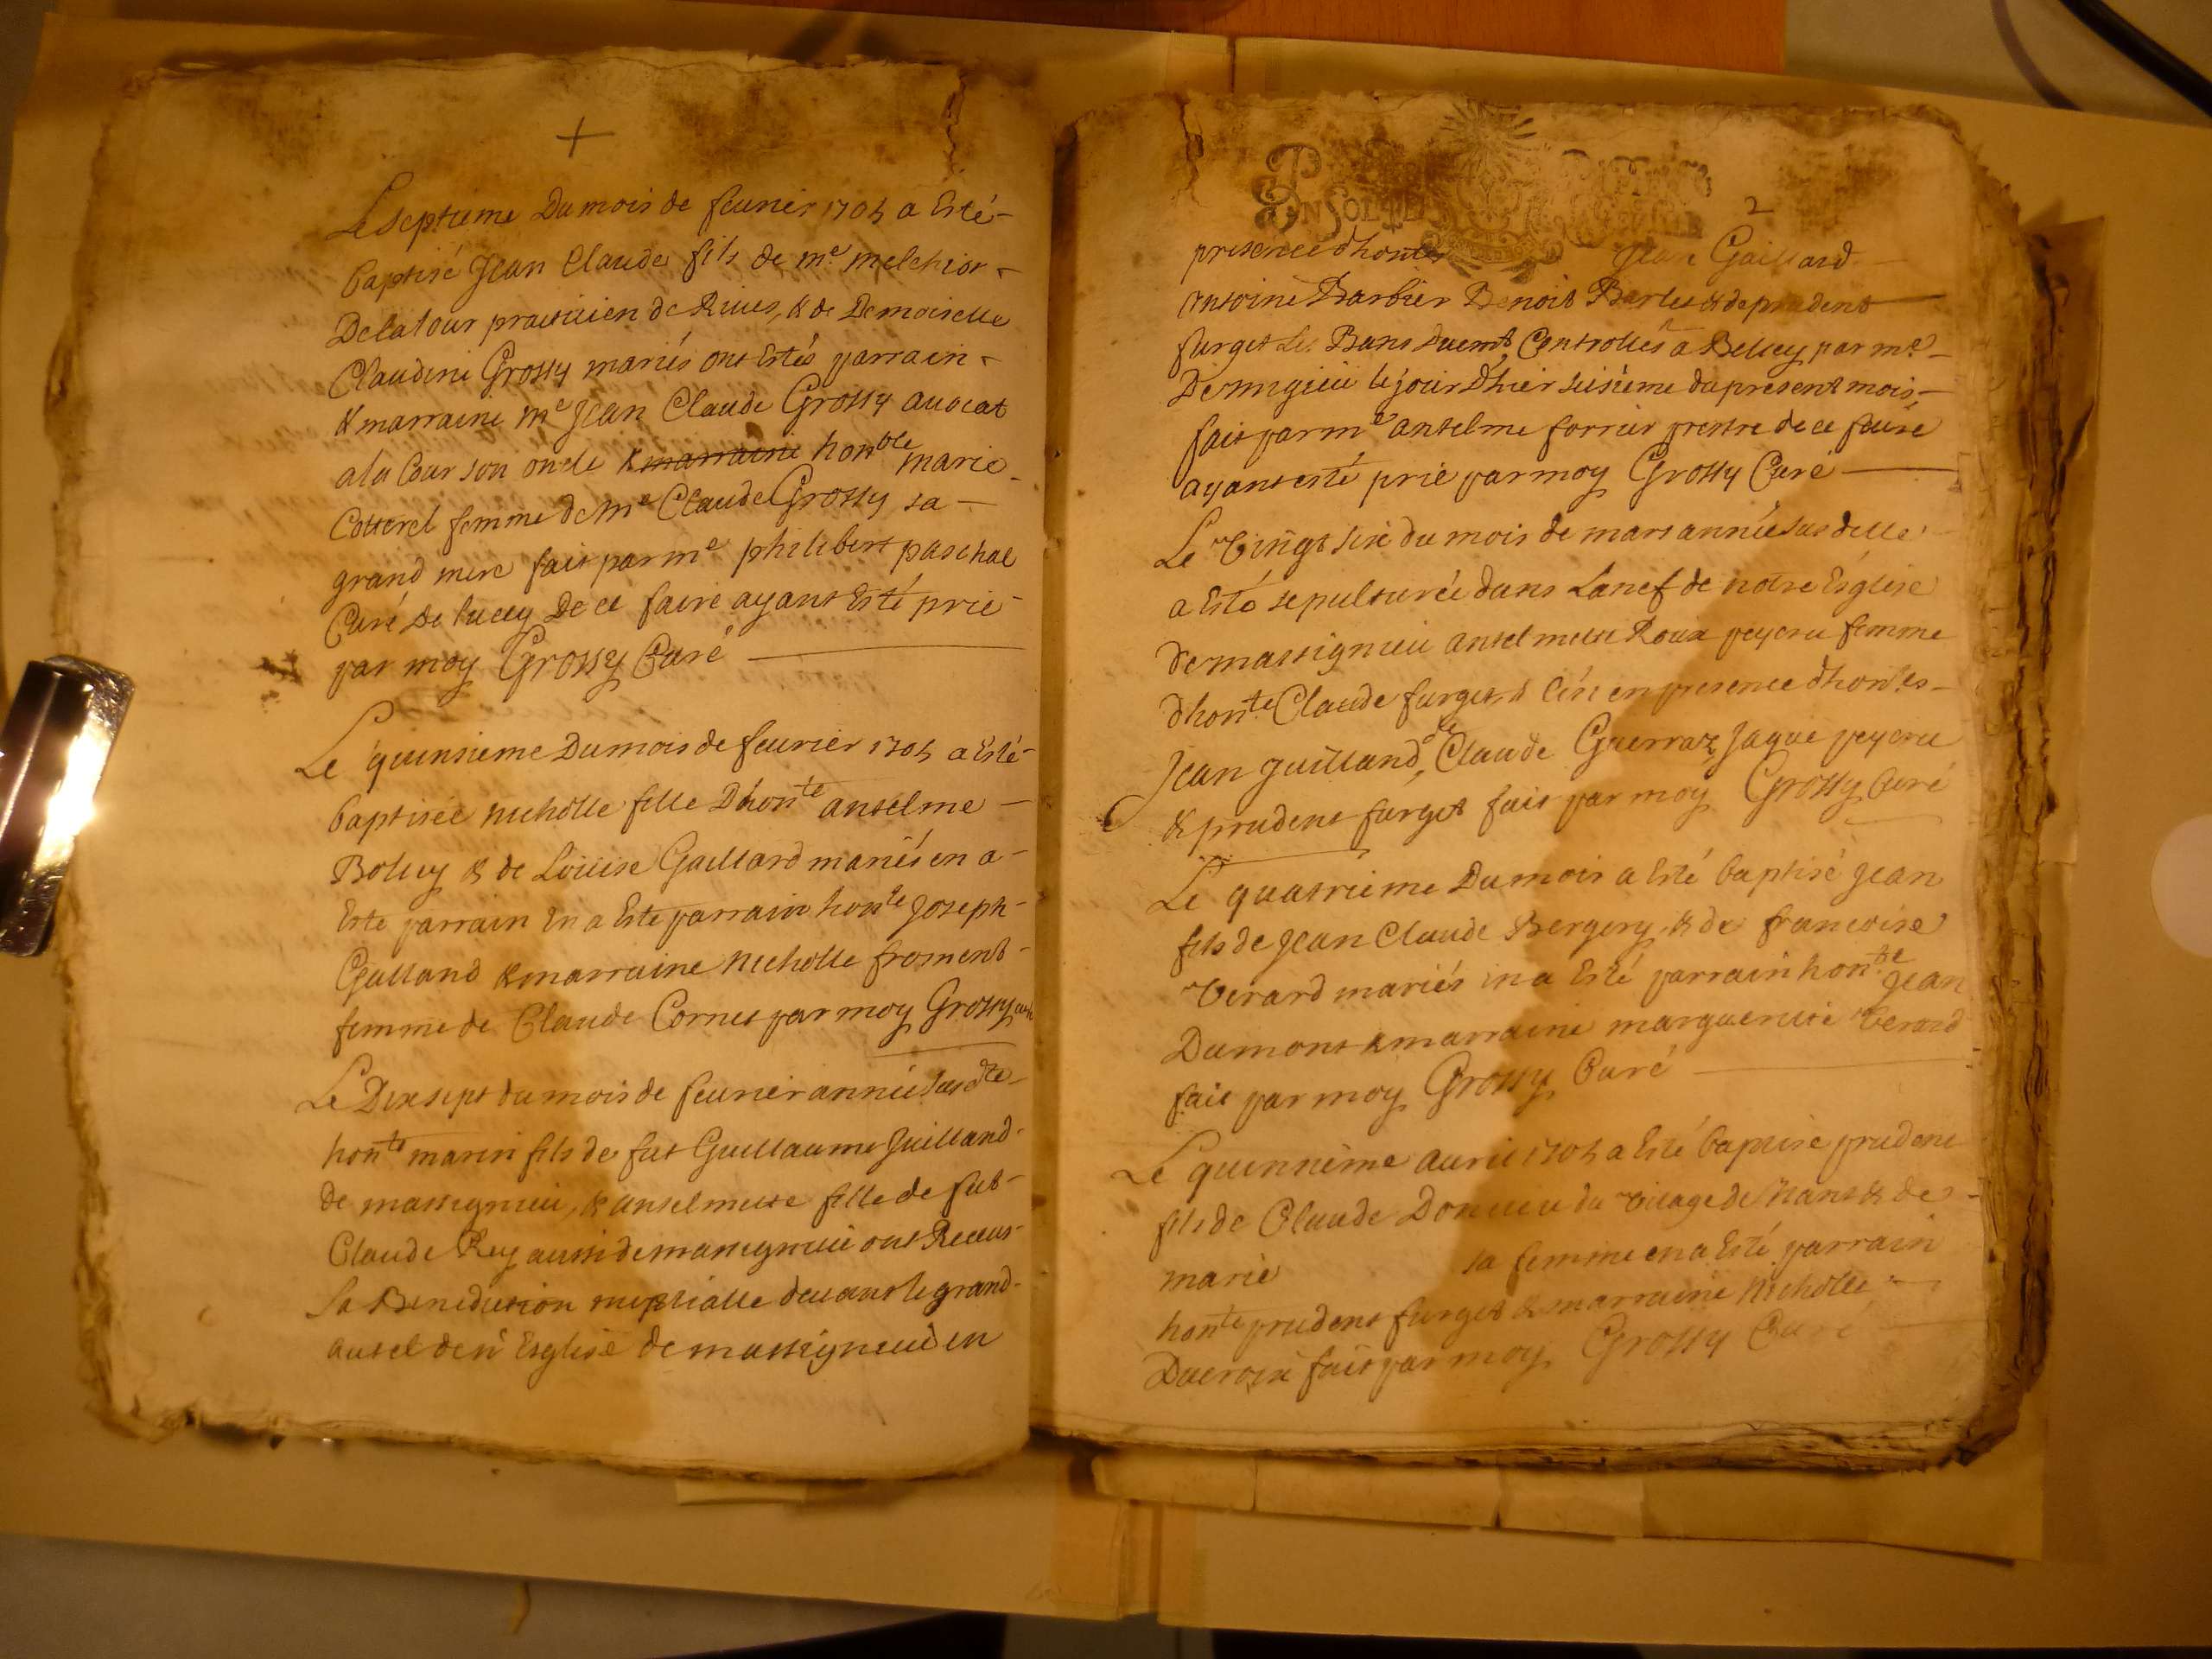 +
Le septieme Du mois de feurier 1705 a Esté
baptisé Jean Claude fils de me melchior
Delatour praticien de Rives, & de Demoiselle
Claudine Grossy mariés ont Estés parrain
& marraine me Jean Claude Grossy auocat
a la Cour son oncle & marraine honble marie
Cotterel femme de me Claude Grossy sa
grand mere fait par me philibert paschal
Curé De lucey De ce faire ayant Esté prie
par moy Grossy Curé
Le quinsieme Du mois de feurier 1705 a Esté
baptisée nicholle fille D'honte anselme
Bolliey & de Louise Gaillard mariés en a
Esté parrain En a Esté parrain honte Joseph
Galland & marraine nicholle froment
femme de Claude Cornet par moy Grossy curé
Le Dix sept du mois de feurier année susdte
honte marin fils de fut Guillaume Juilland
de massignieu, & anselmette fille de fut
Claude Rey aussi de massignieu ont Receus
la Benediction nuptialle deuant le grand
autel de n Esglise de massignieu en
2
presence d'hontes Jean Gaillard
antoine Barbier Benoit Barlet & de prudent
furget Les Bans Duemt Controllés a Belley par me
Dermigieu le jour D'hier seisieme du present mois
fait par me anselme forrier prestre de ce faire
ayant esté prié par moy Grossy Curé
Le Vingt sixe du mois de mars année sus ditte
a Esté sepulturée dans La nef de notre Esglise
de massignieu anselmette Roux peycru femme
d'honte Claude furget, & c'est en presence d'hontes
Jean juilland, Claude Guerraz Jaque peycru
& prudent furget fait par moy Grossy Curé
Le quatrieme Du mois a Esté baptisé Jean
fils de Jean Claude Bergery & de francoise
Verard mariés en a Esté parrain honte Jean
Dumont & marraine marguerite Verard
fait par moy Grossy Curé
Le quinsieme auril 1705 a Esté baptise prudent
fils de Claude Du Village de Nant & de
marie sa femme en a Esté parrain
honte prudent furget & marraine Nicholle
Ducroix fait par moy Grossy Curé